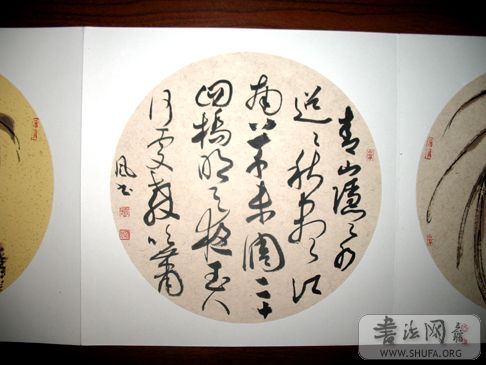 青山隱々水
迢々秋尽江
南草未凋二十
四橋明月夜玉人
何處教吹簫
風书
書法网
WWW.SHUFA.ORG